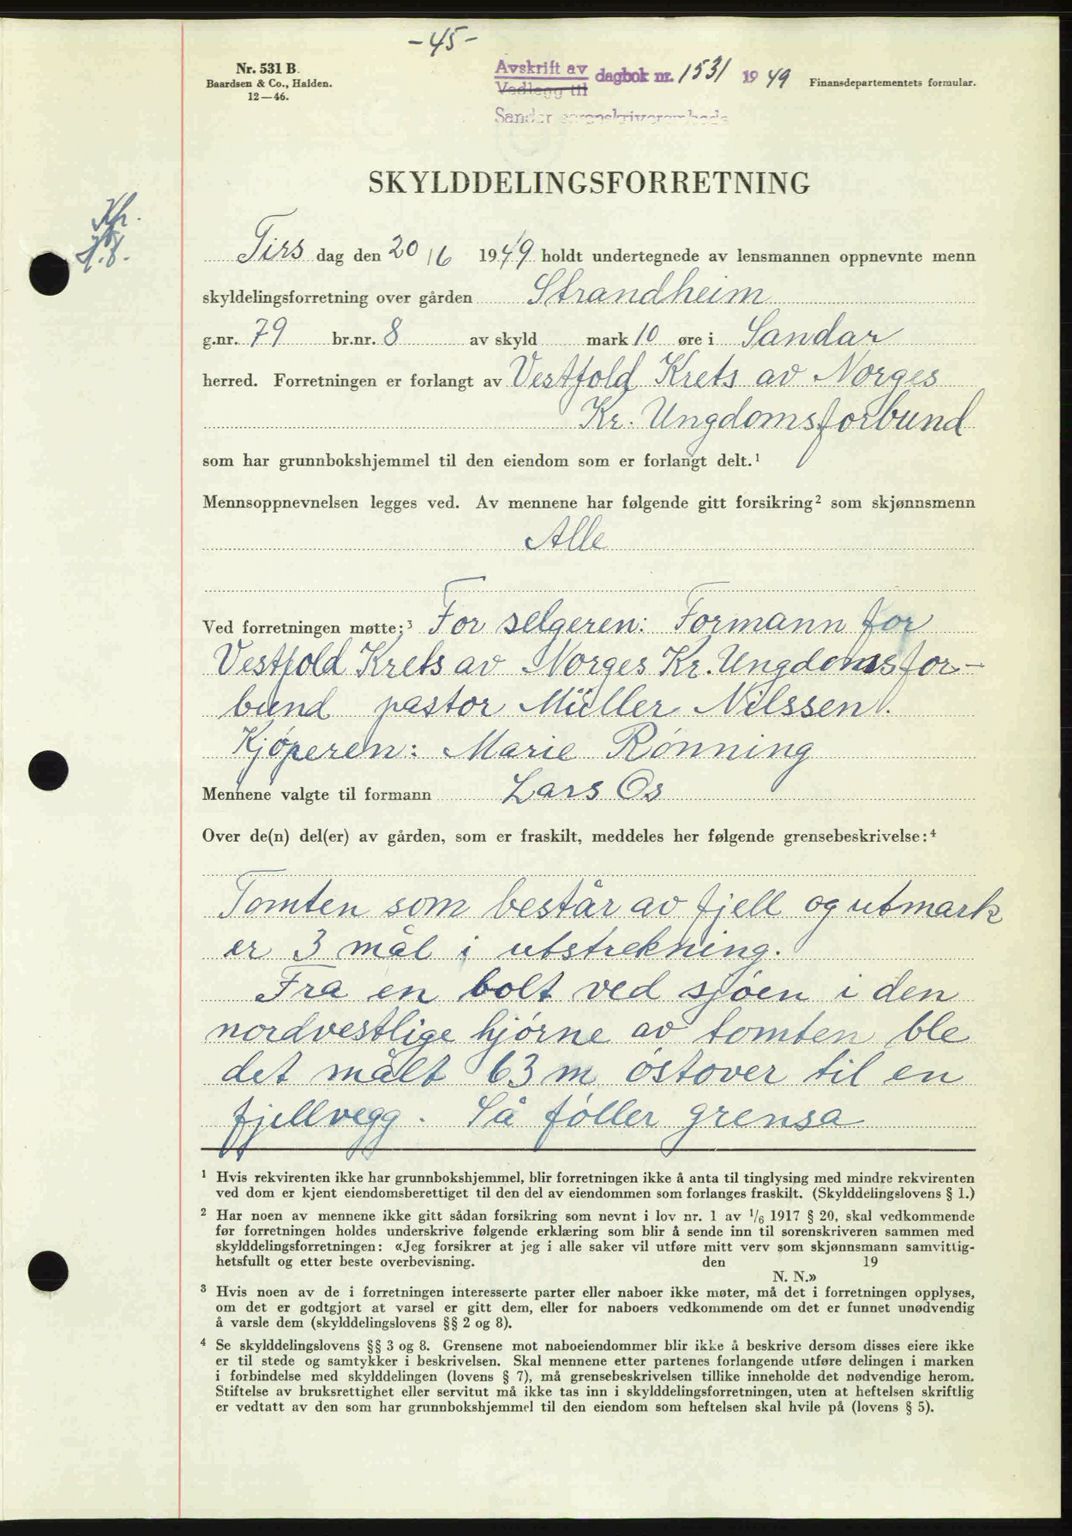 -45-
Nr. 531 B.
Baardsen & Co., Halden.
12—46.
Avskrift av
Vedlegg til
dagbok nr. 1531 1949
Sandar sorenskriverembede
Finansdepartementets formular.
SKYLDDELINGSFORRETNING
Tirs dag den 20/6 1949 holdt undertegnede av lensmannen oppnevnte menn
skyldelingsforretning over gården Strandheim
g.nr. 79 br.nr. 8 av skyld mark 10 øre i Sandar
herred. Forretningen er forlangt av Vestfold Krets av Norges
Kr. Ungdomsforbund
som har grunnbokshjemmel til den eiendom som er forlangt delt.¹
Mennsoppnevnelsen legges ved. Av mennene har følgende gitt forsikring² som skjønnsmenn
Alle
Ved forretningen møtte:³ For selgeren: Formann for
Vestfold Krets av Norges Kr. Ungdomsfor-
bund pastor Müller Nilssen.
Kjøperen: Marie Rønning
Mennene valgte til formann Lars Os
Over de(n) del(er) av gården, som er fraskilt, meddeles her følgende grensebeskrivelse:⁴
Tomten som består av fjell og utmark
er 3 mål i utstrekning.
Fra en bolt ved sjøen i den
nordvestlige hjørne av tomten ble
det målt 63 m østover til en
fjellvegg. Så føller grensa
¹ Hvis rekvirenten ikke har grunnbokshjemmel, blir forretningen ikke å anta til tinglysing med mindre rekvirenten
ved dom er kjent eiendomsberettiget til den del av eiendommen som forlanges fraskilt. (Skylddelingslovens § 1.)
² Har noen av mennene ikke gitt sådan forsikring som nevnt i lov nr. 1 av 1/6 1917 § 20, skal vedkommende
før forretningen holdes underskrive følgende erklæring som blir å sende inn til sorenskriveren sammen med
skylddelingsforretningen: «Jeg forsikrer at jeg i alle saker vil utføre mitt verv som skjønnsmann samvittig-
hetsfullt og etter beste overbevisning. den 19
N. N.»
³ Hvis noen av de i forretningen interesserte parter eller naboer ikke møter, må det i forretningen opplyses,
om det er godtgjort at varsel er gitt dem, eller for naboers vedkommende om det er funnet unødvendig
å varsle dem (skylddelingslovens §§ 2 og 8).
⁴ Se skylddelingslovens §§ 3 og 8. Grensene mot naboeiendommer blir ikke å beskrive dersom disses eiere ikke
er til stede og samtykker i beskrivelsen. Skal mennene etter partenes forlangende utføre delingen i marken
i forbindelse med skylddelingen (lovens § 7), må grensebeskrivelsen tillike inneholde det nødvendige herom.
Stiftelse av bruksrettighet eller servitut må ikke tas inn i skylddelingsforretningen, uten at heftelsen skriftlig
er vedtatt av den som har grunnbokshjemmel til den eiendom som heftelsen skal hvile på (lovens § 5).